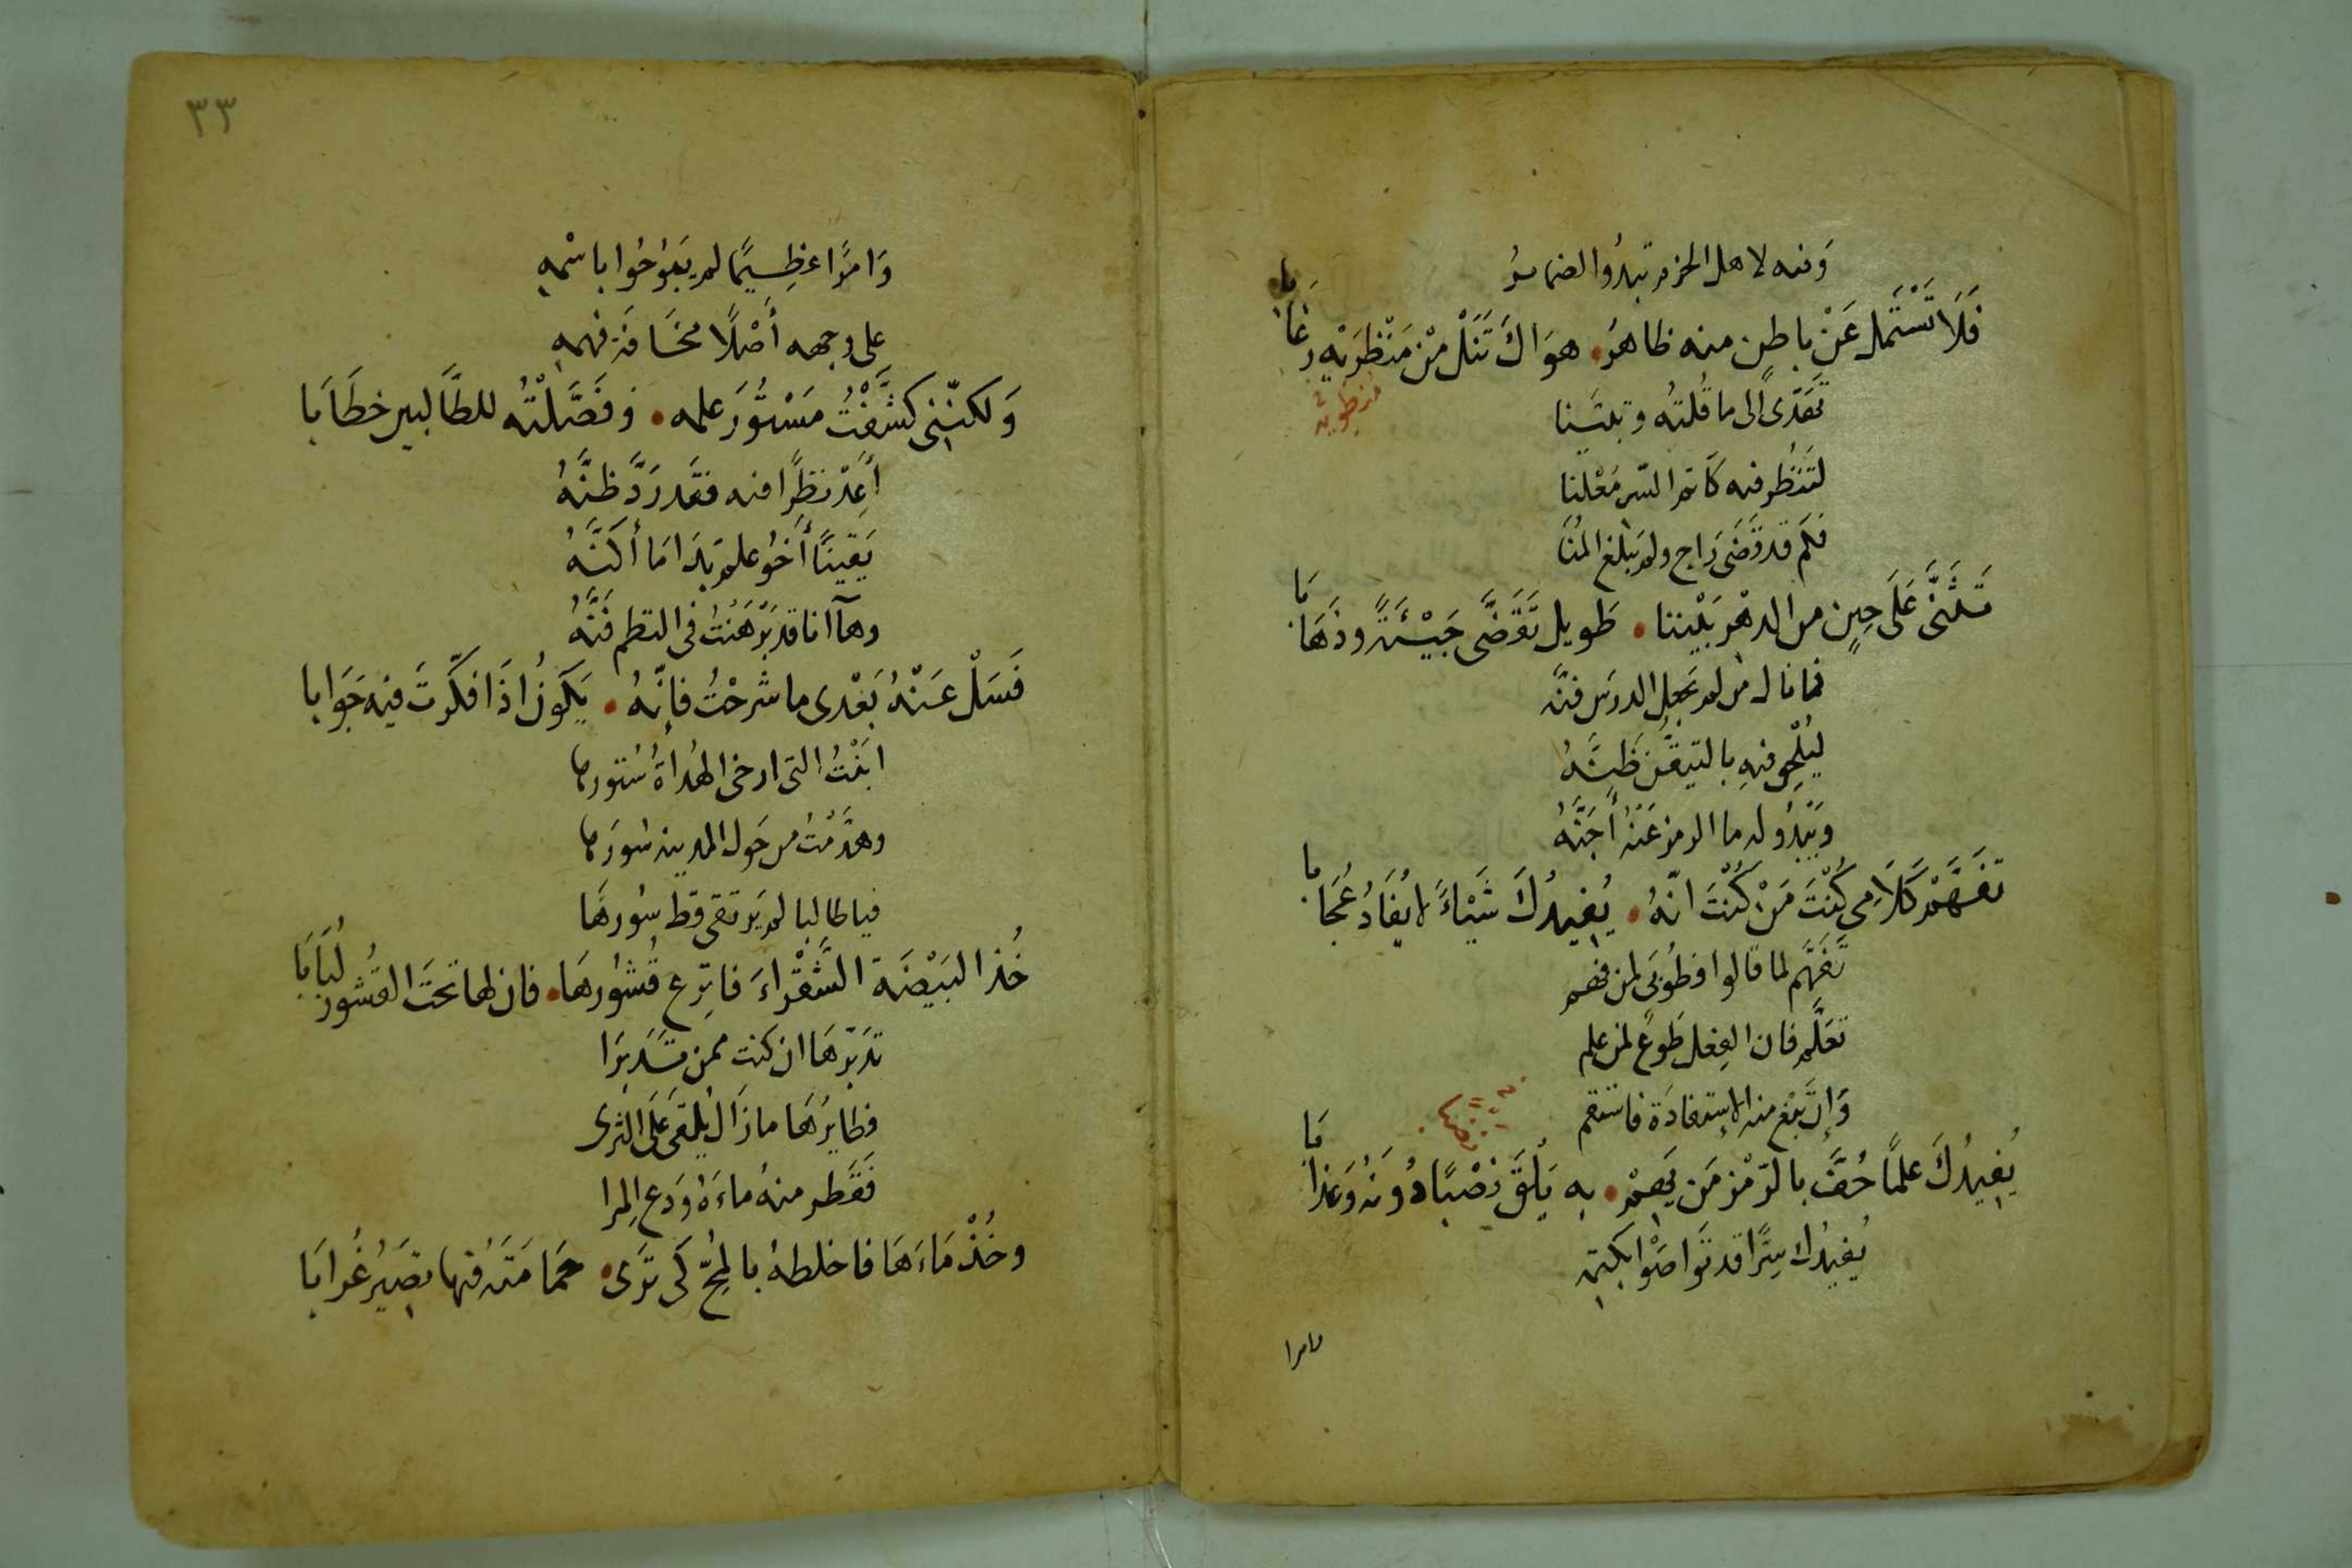 وَفيه لاهل الحزم تبدُوا الضمايرُ
فَلَا تَسْتَمِل عَنْ باطِنٍ منه ظاهرُ • هوَاكَ تَنَلْ مِنْ مَنْظرَيْهِ رغَابا
تَعَدّى الى ما قُلتُه وتبيَّنا
لتَنظُر فيه كَاتم السّر مُعْلنا
فكَم قد قَضَى رَاج ولم يَبلغ المُنَا
تمنَّى عَلَى حِينٍ من الدهْر بَيْننا • طَويل تَقَضَّى جَيْئَةً وذَهَابَا
فما نال من لم يَجعل الدرسَ فنَّه
ليُلْحِق فيهِ بالتيقُّن ظنَّهُ
وَيَبدُو له ما الرمز عَنْهُ أَجَنَّهُ
تَفَهَّمْ كَلَامِى كُنْتَ مَنْ كُنْتَ انّهُ • يُفيدُكَ شَيْاءً لا يُفَادُ عُجَابا
تَفَهَّم لما قالوا فطُوبَى لمن فهم
تعَلَّم فان الفِعل طَوعٌ لمن علم
وَإن تَبْغ منه الاستفادَة فاستقم
يُفِيدُكَ علمًا حُفَّ بالرّمْز مَن يَهِمْ • بِه يَلْقَ نِصْبًا دُونَهُ وَعَذابَا
يُفيدُك سِرًّا قد تَواصَوْا بكتمِهِ
وامرا
٣٣
وَامرًا عَظِيمًا لم يَبُوحُوا باسْمِهِ
على وجهه أَصْلًا مخَافَة فهمهِ
وَلكنّني كشَفْتُ مَسْتُورَ علمه • وَفَصَّلْتُه للطَّالبين خطَابَا
أَعِدْ نظَرًا فيه فقَد رَدَّ ظنَّهُ
يَقِينًا أَخُو علم بَدَا مَا أَكَنَّهُ
وهآ انا قد بَرْهَنْتُ في النظم فَنَّهُ
فَسَلْ عَنْهُ بَعْدى ما شرحْتُ فإنّهُ • يَكُونُ اذَا فكّرتَ فيهِ جَوَابا
ابَنْتُ التى ارخى الهُدَاةُ سُتورها
وهدَّمْتُ من حَول المدينه سُورَها
فيا طالبا لم يَرتقى قط سُورهَا
خُذ البَيْضَة الشَّقْراءَ فانزِع قُشُورهَا • فان لها تحتَ القُشور لُبَابَا
تدَبّرهَا ان كنت ممن تدبّرَا
فطايرُهَا ما زَال يُلقَى عَلَى الثرى
فَقَطّر منهُ ماءَهُ وَدع المرا
وخُذْ مَاءَهَا فاخلطهُ بالمُحّ كَى تَرَى • حَمَامَتَهُ فيها تصَيرُ غُرابَا